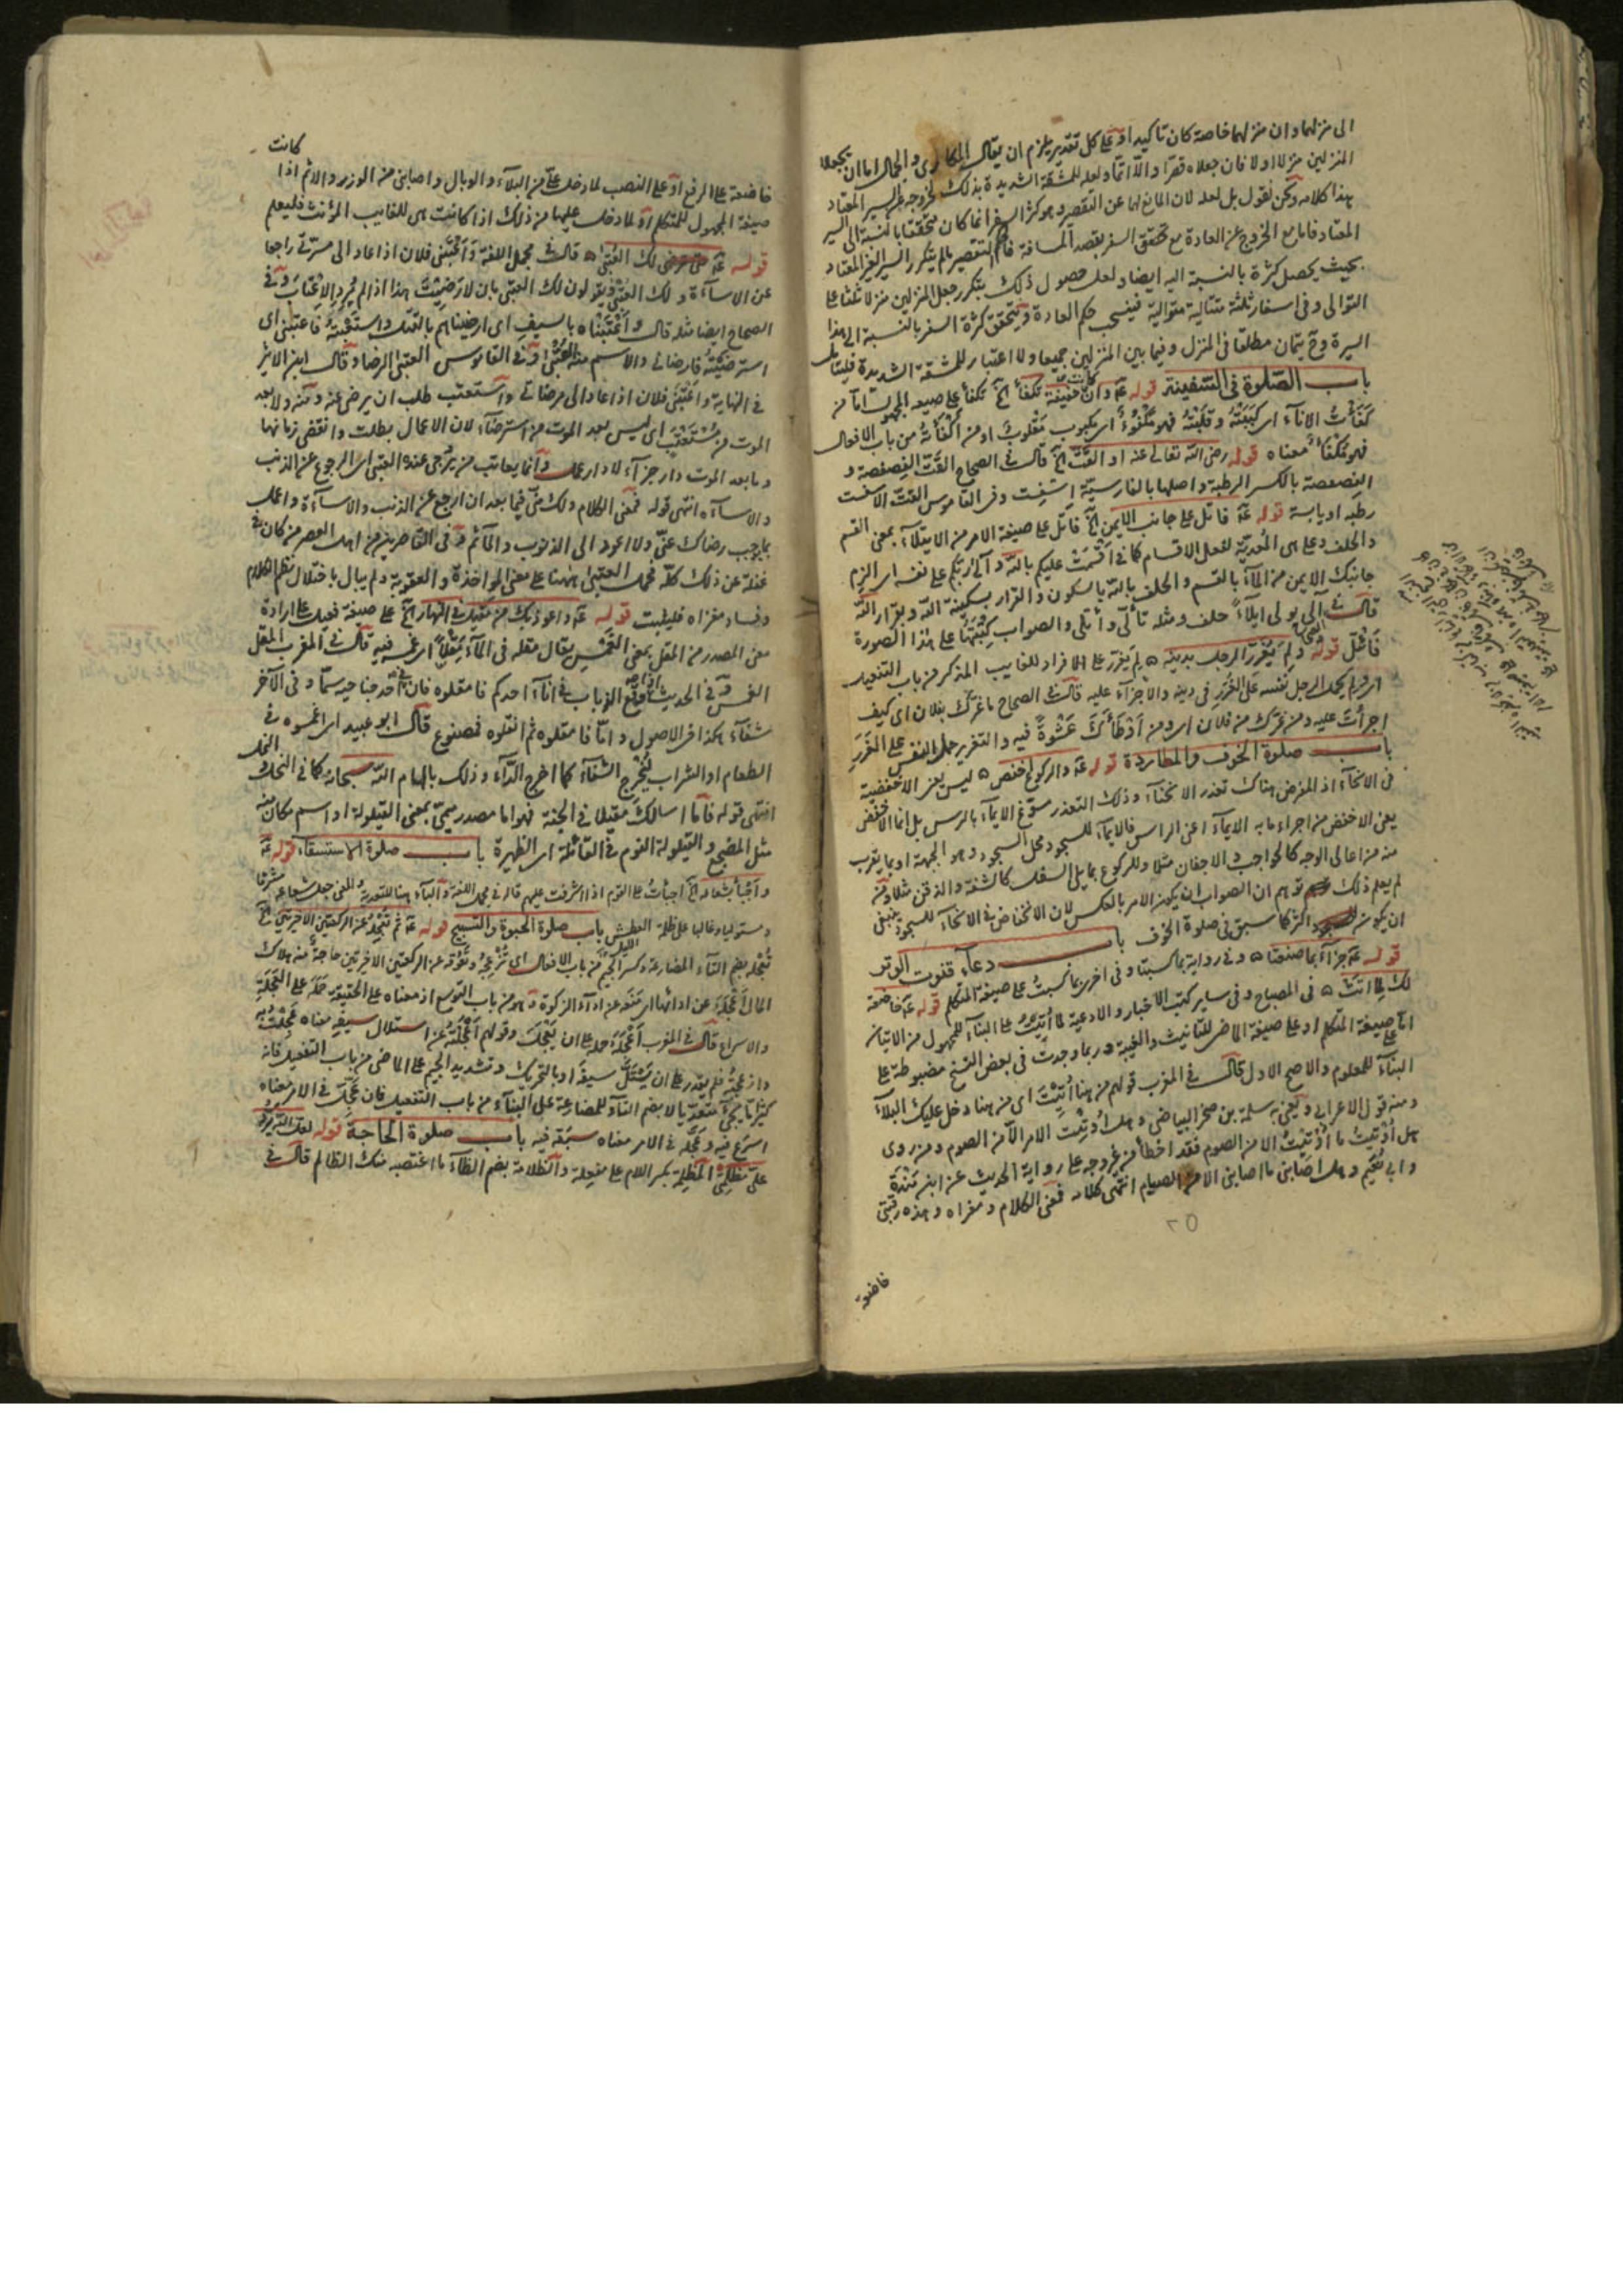 الى منزلهما وان منزلهما خاصة كان تاكيدا وعلى كل تقدير يلزم ان يقال المكارى والجمال اما ان يجعلا
المنزلين منزلا اولا فان جعلاه قصرا والا اتما ولعله للمشقة الشديدة بذلك لخروجه عن السير المعتاد
هذا كلامه ونحن نقول بل لعله لان المانع لهما عن التقصير وهو كثرة السفر انما كان متحققا بالنسبة الى السير
المعتاد فاما مع الخروج عن العادة مع تحقق السفر بقصد المسافة فالتقصير ما لم يتكرر السير الغير المعتاد
بحيث يحصل كثرة بالنسبة اليه ايضا ولعل حصول ذلك بتكرر جعل المنزلين منزلا ثلثا على
التوالى وفى اسفار ثلثة متتالية متوالية فينسحب حكم العادة ويتحقق كثرة السفر بالنسبة الى هذا
السير وح يتمان مطلقا فى المنزل وفيما بين المنزلين جميعا ولا اعتبار للمشقة الشديدة فليتأمل
باب الصلوة فى السفينة قوله ره وان كانت خفيفة تكفأ الخ تكفأ على صيغة المجهول اما من
كفأت الاناء اى كببته وقلبته فهو مكفوء اى مكبوب مقلوب او من أكفأته من باب الافعال
فهو مكفأ معناه قوله رضى الله تعالى عنه او القت الخ قال فى الصحاح القت الفصفصة و
الفصفصة بالكسر الرطبة واصلها بالفارسية اسفست وفى القاموس القت الاسفست
رطبه او يابسة قوله ره فاتل على جانب الايمن الخ فاتل على صيغة الامر من الايتلاء بمعنى القسم
والحلف وعلى هى المعدية لفعل الاقسام كما فى اقسمت عليكم بالله وآلى ربكم على نفسه اى الزم
جانبك الايمن من الماء بالقسم والحلف بالله بالسكون والقرار بسكينة الله وبقرار الله
قال فى آلى يولى ايلاء حلف ومثله تألى وأتلى والصواب كتبتها على هذا الصورة
فأتل قوله ولم يغرر الرجل بدينه ۵ لم يغرر على الافراد للغايب المذكر من باب التفعيل
اى ولم يحمل الرجل نفسه على الغرر فى دينه والاجزاء عليه قال فى الصحاح ما غرك بفلان اى كيف
اجترأت عليه ومن غرك من فلان اى من أوطأك عشوة فيه والتغرير حمل النفس على الغرر
باب صلوة الخوف والمطاردة قوله ره والركوع اخفض ۵ ليس يعنى الاخفضية
فى الانحناء اذ المفرض هناك تعذر الانحناء وذلك التعذر مسوغ الايماء بالرأس بل انما الاخفض
يعنى الاخفض من اجراء ما به الايماء اعنى الراس فالايماء للسجود محل السجود وهو الجبهة او بما يقرب
منه من اعالى الوجه كالحواجب والاجفان مثلا وللركوع بما يلى السفل كالشفة والذقن مثلا ومن
لم يعلم ذلك توهم ان الصواب ان يكون الامر بالعكس لان الانخفاض فى الانحناء للسجود ينبغى
ان يكون اكثر كما سبق فى صلوة الخوف باب دعاء قنوت الوتر
قوله ره جزاء بما صنعنا ۵ وفى رواية بما كسبنا وفى اخرى بما كسبت على صيغة المتكلم قوله ره خاضعة
لك لما اتت ۵ فى المصباح وفى ساير كتب الاخبار والادعية لما أتيت على البناء للمجهول من الاتيان
اما على صيغة المتكلم او على صيغة الماضى للتانيث والغيبة وربما وجدت فى بعض النسخ مضبوطة على
البناء للمعلوم والاصح الاول قال فى المغرب قولهم من هنا أتيت اى من هنا دخل عليك البلاء
ومنه قول الاعرابى ويعنى به سلمة بن صخر البياضى وهل أوتيت الامر الا من الصوم ومن روى
هل أوتيت ما أوتيت الا من الصوم فقد اخطأ من غير وجه على رواية الحديث عن ابن مندة
وابى نعيم وهل اصابنى ما اصابنى الا من الصيام انتهى كلامه فمعنى الكلام ومغزاه وهذه رقبتى
٢٥
خاضعة
كانت
خاضعة على الرفع او على النصب لما دخل على من البلاء والوبال واصابنى من الوزر والاثم اذا
صيغة المجهول للمتكلم او لما دخل عليها من ذلك اذا كانت هى للغايب المؤنث فليعلم
قوله ره لك العتبى ۵ قال فى مجمل اللغة وأعتبنى فلان اذا عاد الى مسرتى راجعا
عن الاساءة ولك العتبى ويقولون لك العتبى بان لا رضيت هذا اذا لم يرد الاعتاب وفى
الصحاح ايضا مثله قال وأعتبناه بالسيف اى ارضيناهم بالقتل واستعتبته فاعتبنى اى
استرضيته فارضانى والاسم منه العتبى وفى القاموس العتبى الرضا وقال ابن الاثير
فى النهاية واعتبنى فلان اذا عاد الى مرضاتى واستعتب طلب ان يرضى عنه ومنه ولا بعد
الموت من مستعتب اى ليس بعد الموت من استرضاء لان الاعمال بطلت وانقضى زمانها
وما بعد الموت دار جزاء لا دار عمل وانما يعاتب من يرجى عنده العتبى اى الرجوع عن الذنب
والاساءه انتهى قوله فمعنى الكلام ولك منى فيما بعد ان ارجع عن الذنب والاساءة واعمل
بما يوجب رضاك عنى ولا اعود الى الذنوب والمآثم وفى القاصرين من اهل العصر من كان فى
غفلة عن ذلك كله فحمل العتبى هٰهنا على معنى المواخذة والعقوبة ولم يبال باختلال نظم الكلام
وفساد مغزاه فليثبت قوله ره واعوذ بك من مقيل فى النهار الخ على صيغة فعيل على ارادة
معنى المصدر من المقل بمعنى الغمس يقال مقله فى الماء مقلا اى غمسه فيه قال فى المغرب المقل
الغمس وفى الحديث اذا وقع الذباب فى اناء احدكم فامقلوه فان فى احد جناحيه سما وفى الآخر
شفاء هكذا فى الاصول واما فامقلوه ثم انقلوه فمصنوع قال ابو عبيد اى اغمسوه فى
الطعام او الشراب ليخرج الشفاء كما اخرج الداء وذلك بالهام الله سبحانه كما فى النحل و النمل
انتهى قوله فاما اسالك مقيلا فى الجنة فهو اما مصدر ميمى بمعنى القيلولة او اسم مكان منه
مثل المضجع والقيلولة النوم فى القائلة اى الظهيرة باب صلوة الاستسقاء قوله ره
واجبأ شعاره الخ اجبأت على القوم اذا اشرفت عليهم قاله فى مجمل اللغة والباء هٰهنا للتعدية والمعنى جعل شعاعه مشرفا
ومستوليا وغالبا على ظلمة العطش باب صلوة الحبوة والتسبيح قوله ره ثم تعجله عن الركعتين الاخيرتين الخ
تعجله بضم التاء المضارعة وكسر الجيم من باب الافعال اى تزعجه وتعوقه عن الركعتين الاخيرتين حاجة منه هلاك
المال اعجله عن ادائها اى منعه عن اداء الزكوة وهو من باب التوسع اذ معناه على الحقيقة حمله على العجلة
والاسراع قال فى المغرب أعجله حمله على ان يعجل وقولهم أعجلته عن استلال سيفه معناه عجلت به
وازعجته فلم يقدر على ان يستل سيفه او بالتحريك وتشديد الجيم على الماضى من باب التفعيل فانه
كثيرا ما يجئ متعديا لا بضم التاء للمضارعة على البناء من باب التفعيل فان عجل فى الامر معناه
اسرع فيه وعجله فى الامر معناه سبقه فيه باب صلوة الحاجة قوله
على مظلمتى المظلمة بكسر اللام على مفعلة والظلامة بضم الظاء ما اغتصبه منك الظالم قال فى